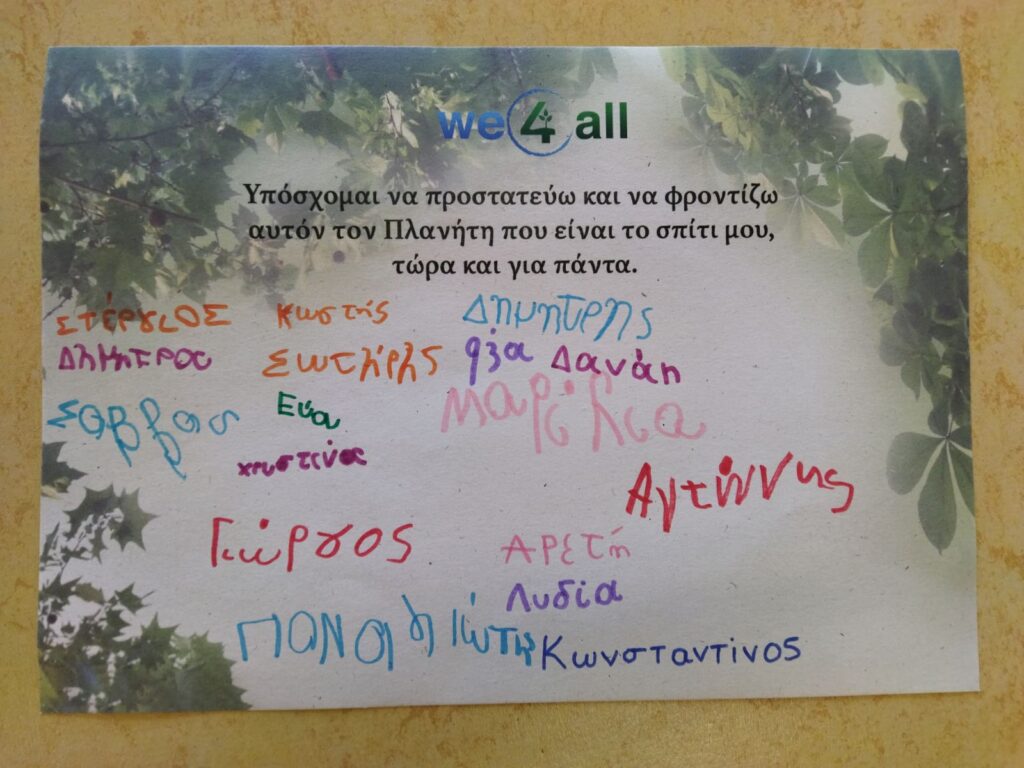 we 4 all
Υπόσχομαι να προστατεύω και να φροντίζω
αυτόν τον Πλανήτη που είναι το σπίτι μου,
τώρα και για πάντα.
Στέργιος Κωστής Δημητρης
Δημητρου Σωτήρης Δανάη
Σαββας Εύα Μαρέλια
χριστινα
Αντώννης
Γιώργος Αρετή
Λυδία
Κωνσταντίνος